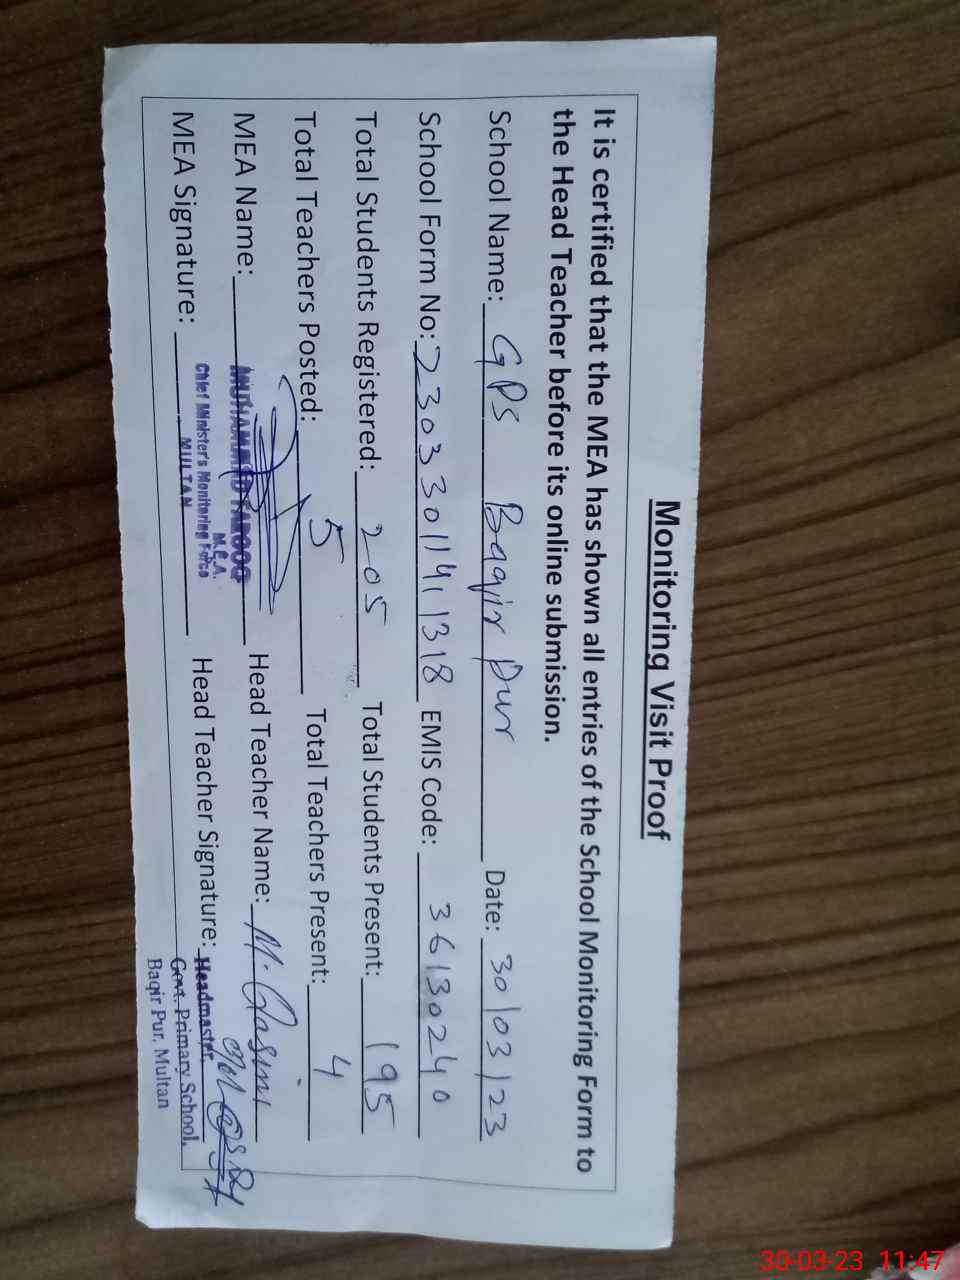 Monitoring Visit Proof
It is certified that the MEA has shown all entries of the School Monitoring Form to
the Head Teacher before its online submission.
School Name: GPS Baqir Pur Date: 30/03/23
School Form No: 2303301141318 EMIS Code: 36130240
Total Students Registered: 205 Total Students Present: 195
Total Teachers Posted: 5 Total Teachers Present: 4
MEA Name: MUHAMMAD FAROOQ Head Teacher Name: M. Qasim
M.E.A.
MEA Signature: Chief Minister's Monitoring Force Head Teacher Signature: Headmaster,
MULTAN
Govt. Primary School,
Baqir Pur, Multan
30-03-23 11:47